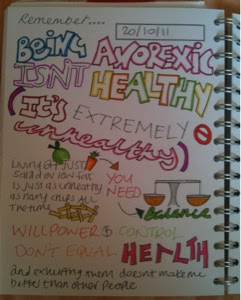 Remember....
20/10/11
BEING ANOREXIC
ISN'T HEALTHY
(IT'S EXTREMELY
unhealthy)
Living off just
salad or low fat
is just as unhealthy
as many chips all
The time
YOU
NEED
Balance
WILLPOWER & CONTROL
DON'T EQUAL HEALTH
and exhibiting them doesn't make me
better than other people